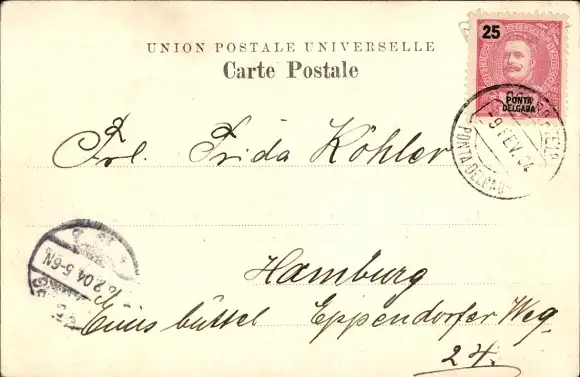 UNION POSTALE UNIVERSELLE
Carte Postale
25
PONTA
DELGADA
9 FEV. 04
PONTA DELGADA
Frl. Frida Köhler
Hamburg
2.04 5-6N
Eimsbüttel Eppendorfer Weg
24.